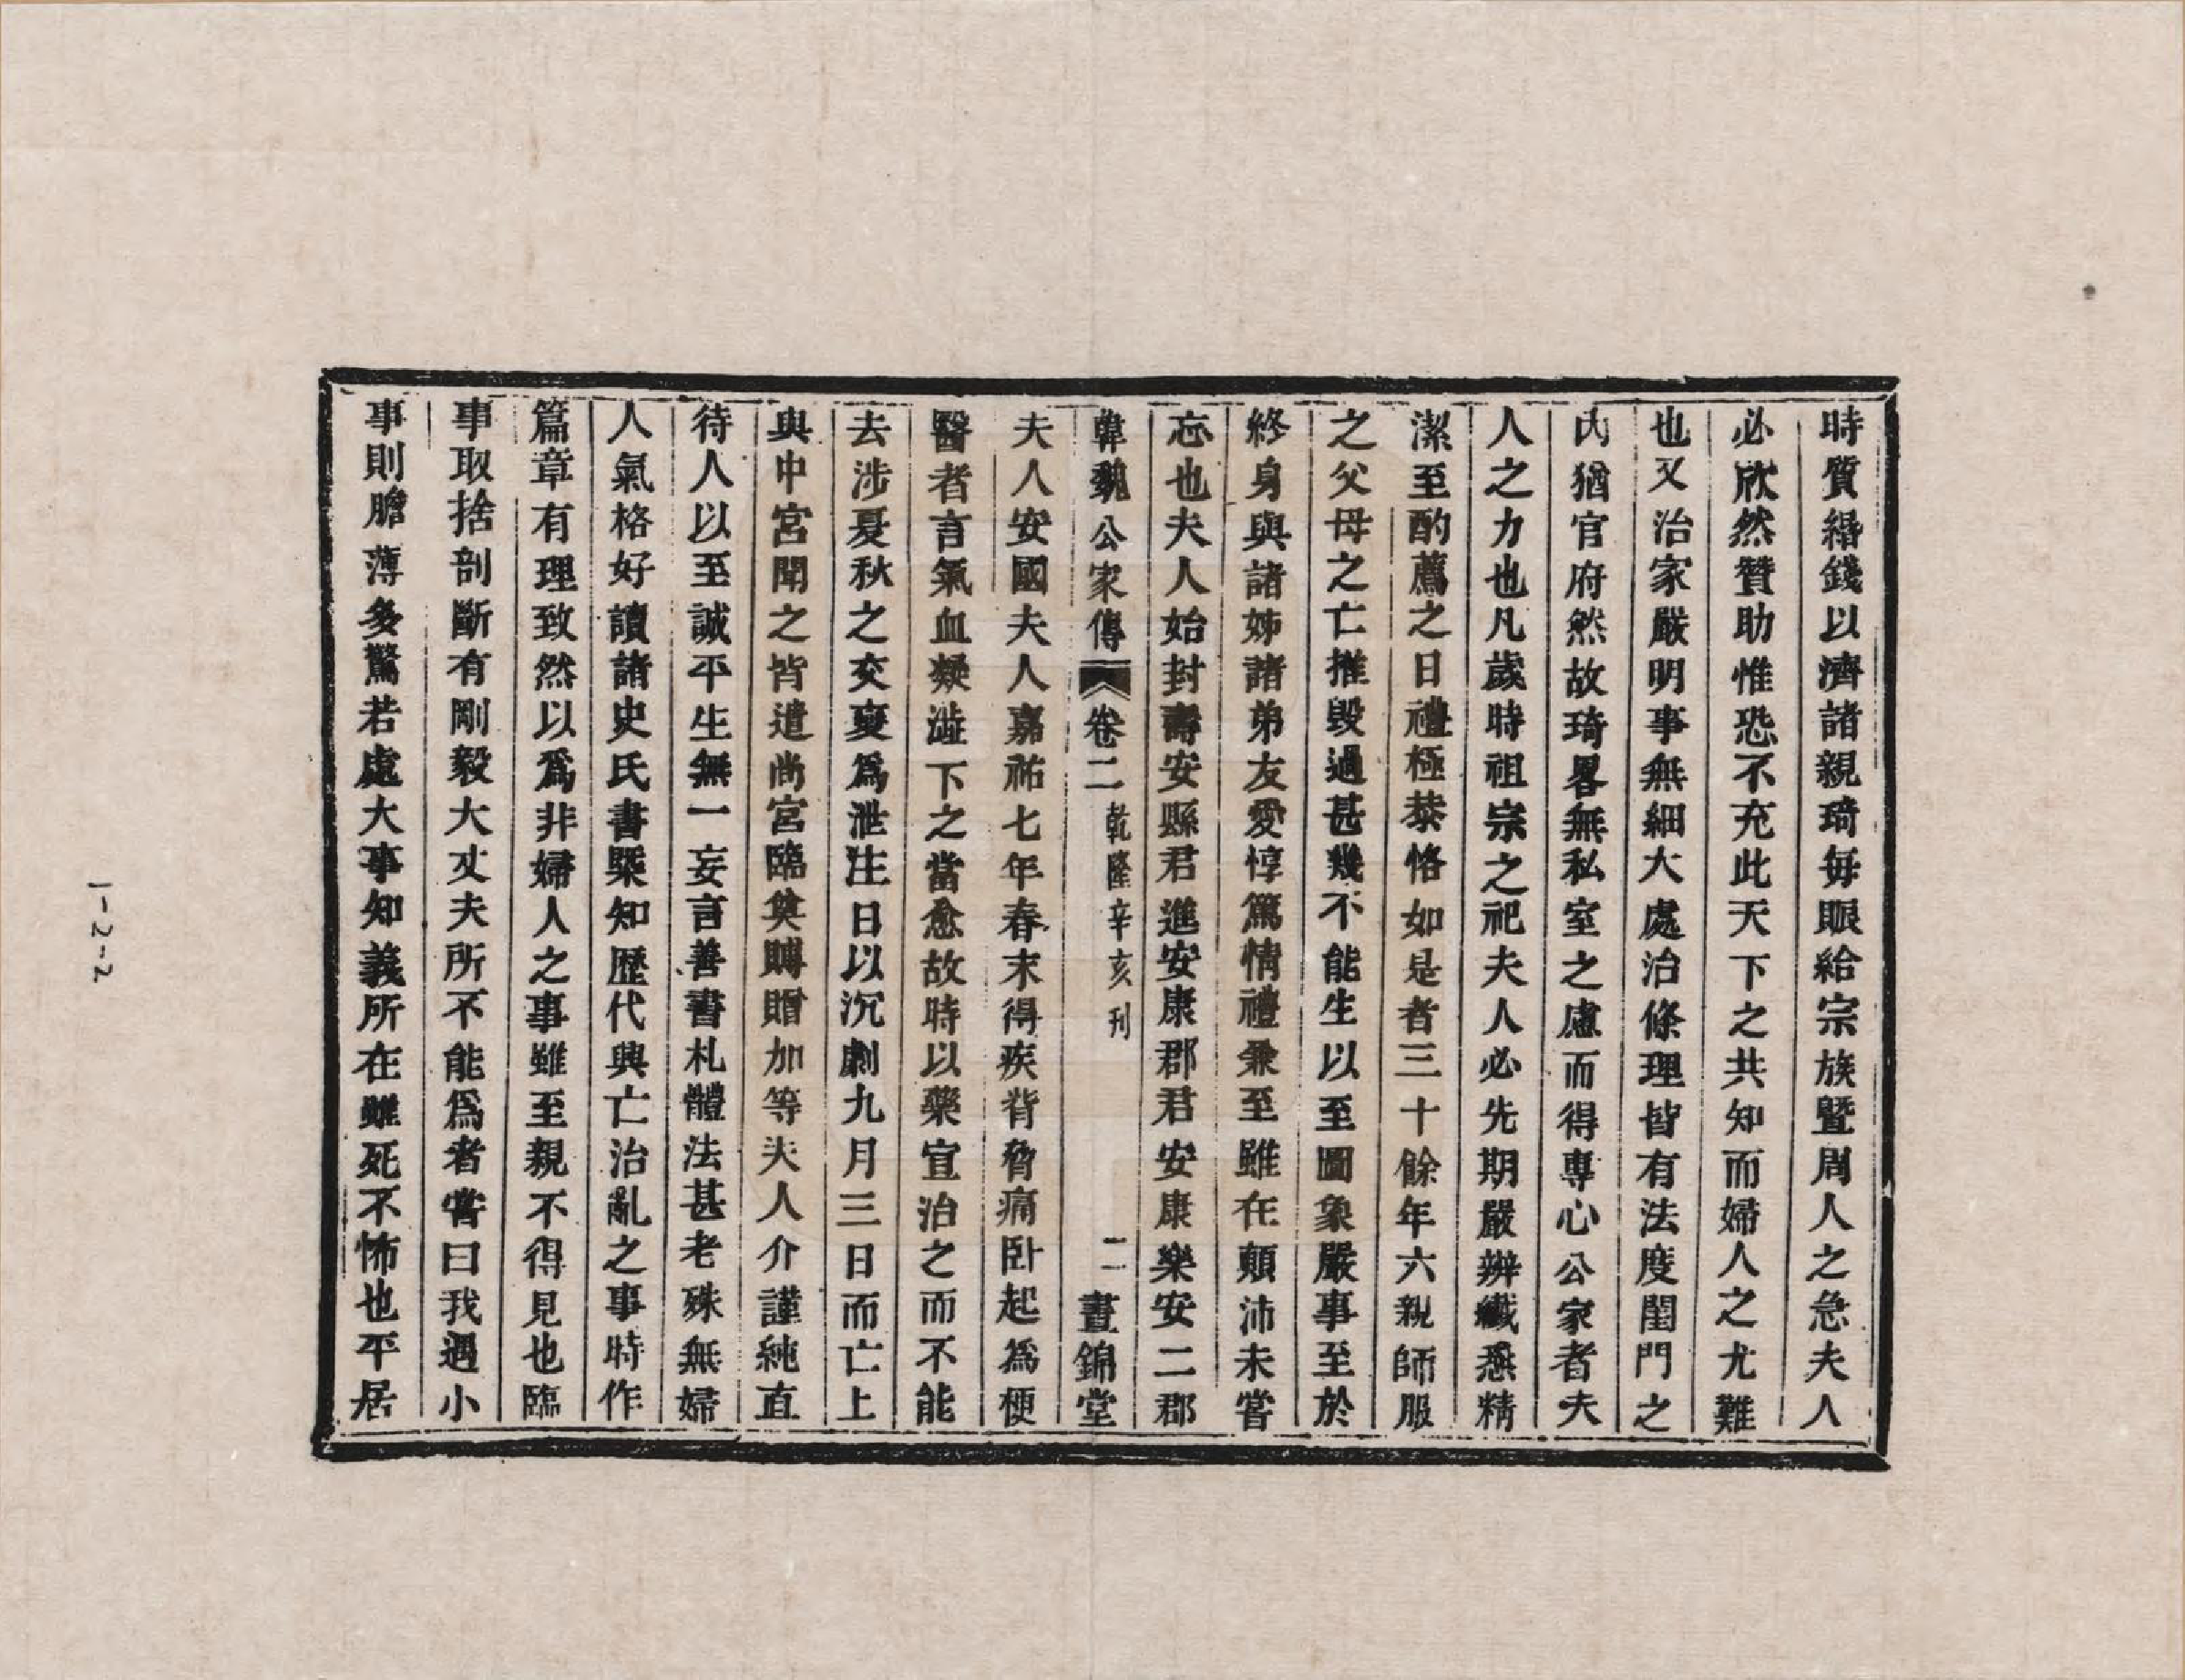 時質緡錢以濟諸親琦每賑給宗族暨周人之急夫人
必欣然贊助惟恐不充此天下之共知而婦人之尤難
也又治家嚴明事無細大處治條理皆有法度閨門之
內猶官府然故琦畧無私室之慮而得專心公家者夫
人之力也凡歲時祖宗之祀夫人必先期嚴辦纖悉精
潔至酌薦之日禮極恭恪如是者三十餘年六親師服
之父母之亡摧毀過甚幾不能生以至圖象嚴事至於
終身與諸姊諸弟友愛惇篤情禮兼至雖在顛沛未嘗
忘也夫人始封壽安縣君進安康郡君安康樂安二郡
韓魏公家傳 卷二 乾隆辛亥刊 二 晝錦堂
夫人安國夫人嘉祐七年春末得疾背脅痛卧起為梗
醫者言氣血凝澁下之當愈故時以藥宣治之而不能
去涉夏秋之交變為泄注日以沉劇九月三日而亡上
與中宮聞之皆遣尚宮臨奠賻贈加等夫人介謹純直
待人以至誠平生無一妄言善書札體法甚老殊無婦
人氣格好讀諸史氏書槩知歷代興亡治亂之事時作
篇章有理致然以為非婦人之事雖至親不得見也臨
事取捨剖斷有剛毅大丈夫所不能為者嘗曰我遇小
事則膽薄多驚若處大事知義所在雖死不怖也平居
1-2-2